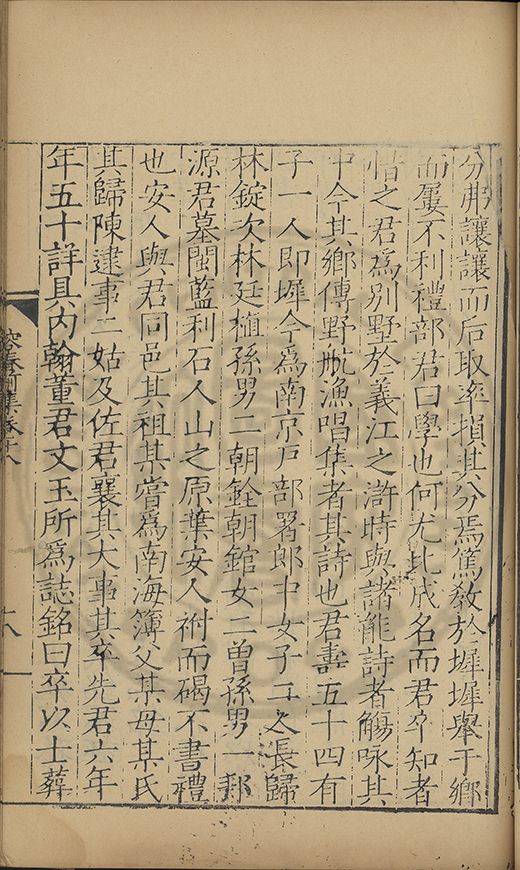 分弗讓讓而后取率損其分焉篤教於墀墀舉于鄉
而屢不利禮部君曰學也何尤比成名而君卒知者
惜之君為別墅於義江之滸時與諸能詩者觴咏其
中今其鄉傳野航漁唱集者其詩也君壽五十四有
子一人即墀今為南京戶部署郎中女子二人長歸
林錠次林廷植孫男二朝銓朝錧女二曾孫男一邦
源君墓閩藍利石人山之原葉安人祔而碣不書禮
也安人與君同邑其祖某嘗為南海簿父某母某氏
其歸陳逮事二姑及佐君襄其大事其卒先君六年
年五十詳具內翰董君文玉所為誌銘曰卒以士葬
容春前集卷十八
十八